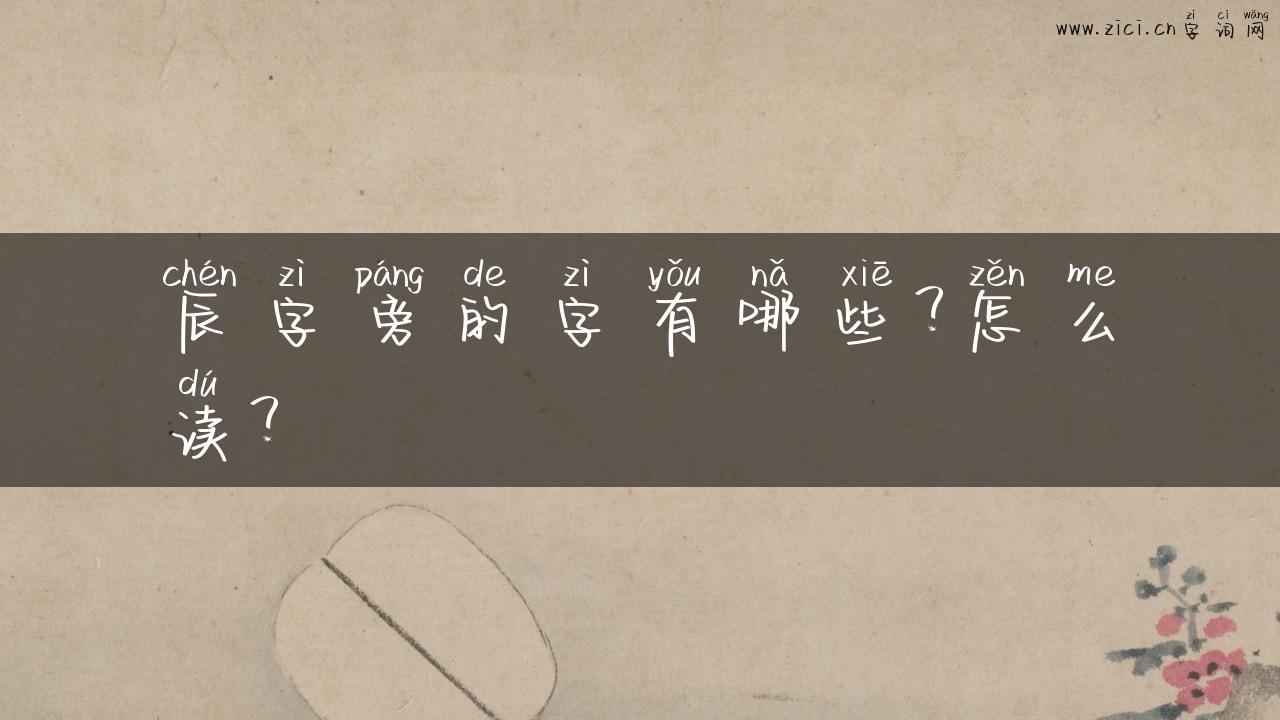 zì cí wǎng
www.zici.cn字词网
chén zì páng de zì yǒu nǎ xiē zěn me
辰字旁的字有哪些？怎么
dú
读？